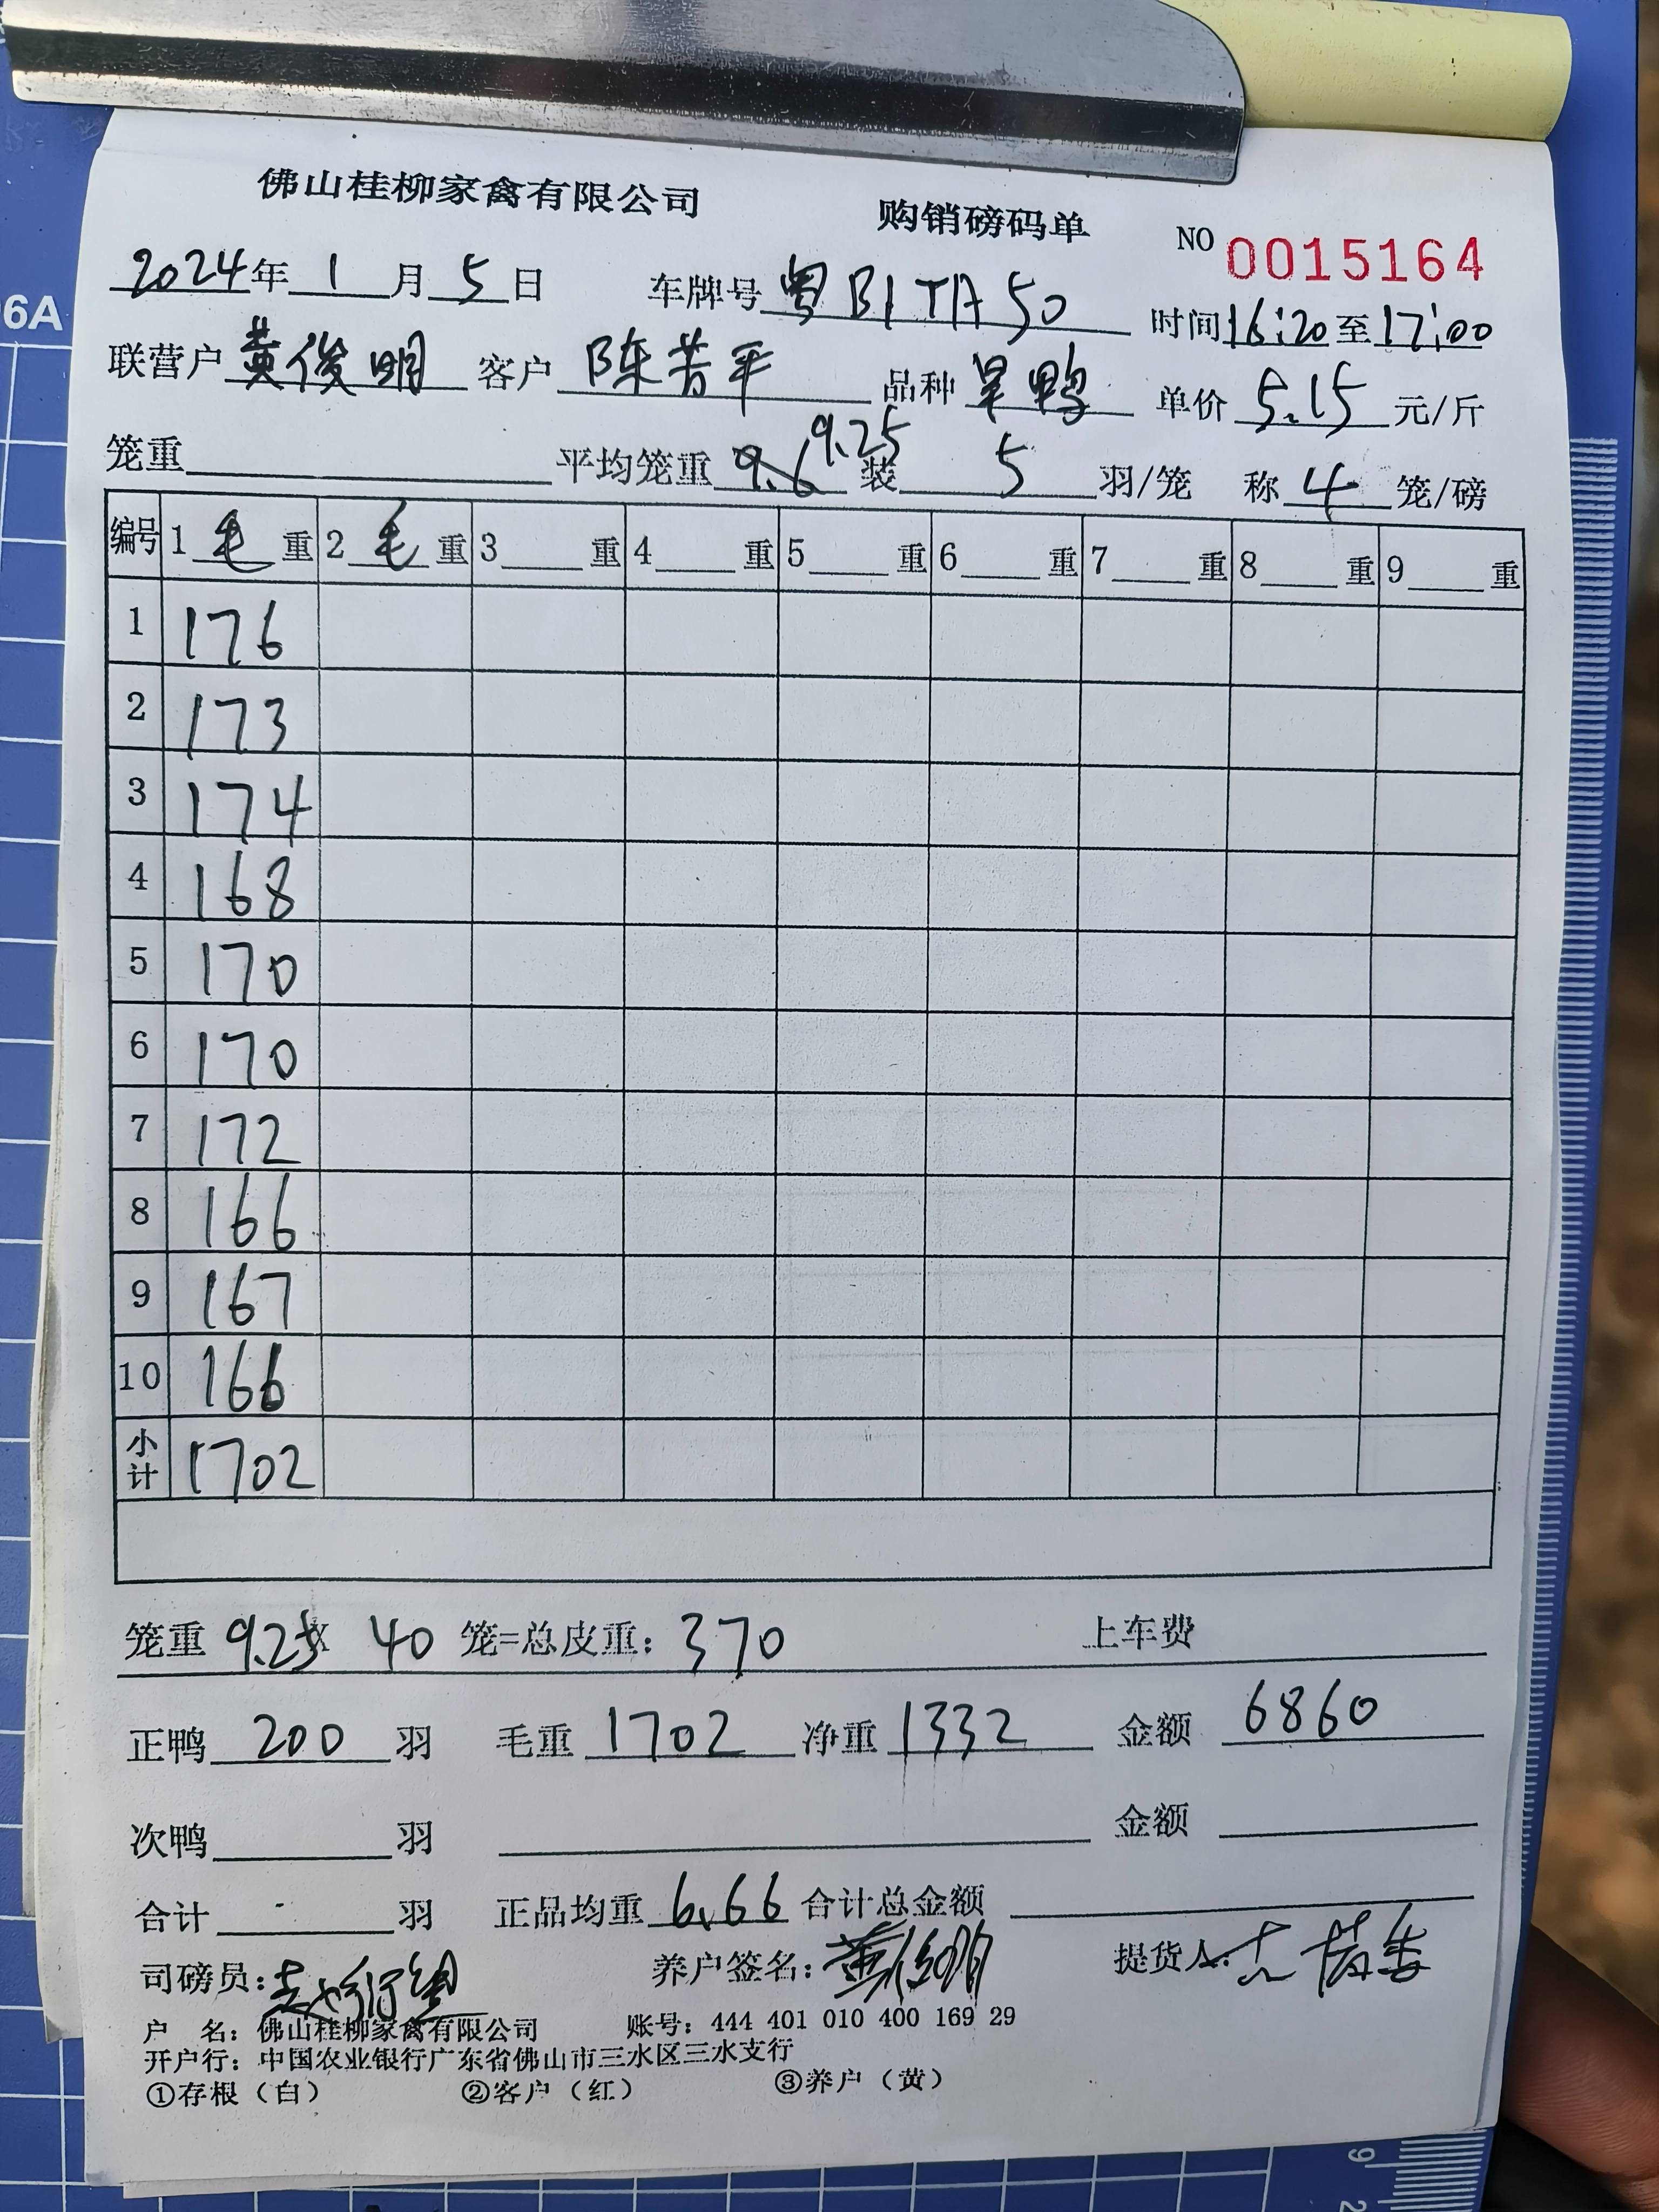 佛山桂柳家禽有限公司 购销磅码单 NO 0015164
2024年 1 月 5 日 车牌号 粤B1TA50 时间 16:20 至 17:00
联营户 黄俊明 客户 陈芳平 品种 旱鸭 单价 5.15 元/斤
笼重 平均笼重 9.6 9.25 装 5 羽/笼 称 4 笼/磅
编号 1 毛 重 2 毛 重 3 重 4 重 5 重 6 重 7 重 8 重 9 重
1 176
2 173
3 174
4 168
5 170
6 170
7 172
8 166
9 167
10 166
小计 1702
笼重 9.25 X 40 笼=总皮重: 370 上车费
正鸭 200 羽 毛重 1702 净重 1332 金额 6860
次鸭 羽 金额
合计 羽 正品均重 6.66 合计总金额
司磅员: 养户签名: 黄俊明 提货人:
户 名: 佛山桂柳家禽有限公司 账号: 444 401 010 400 169 29
开户行: 中国农业银行广东省佛山市三水区三水支行
①存根(白) ②客户(红) ③养户(黄)
6A